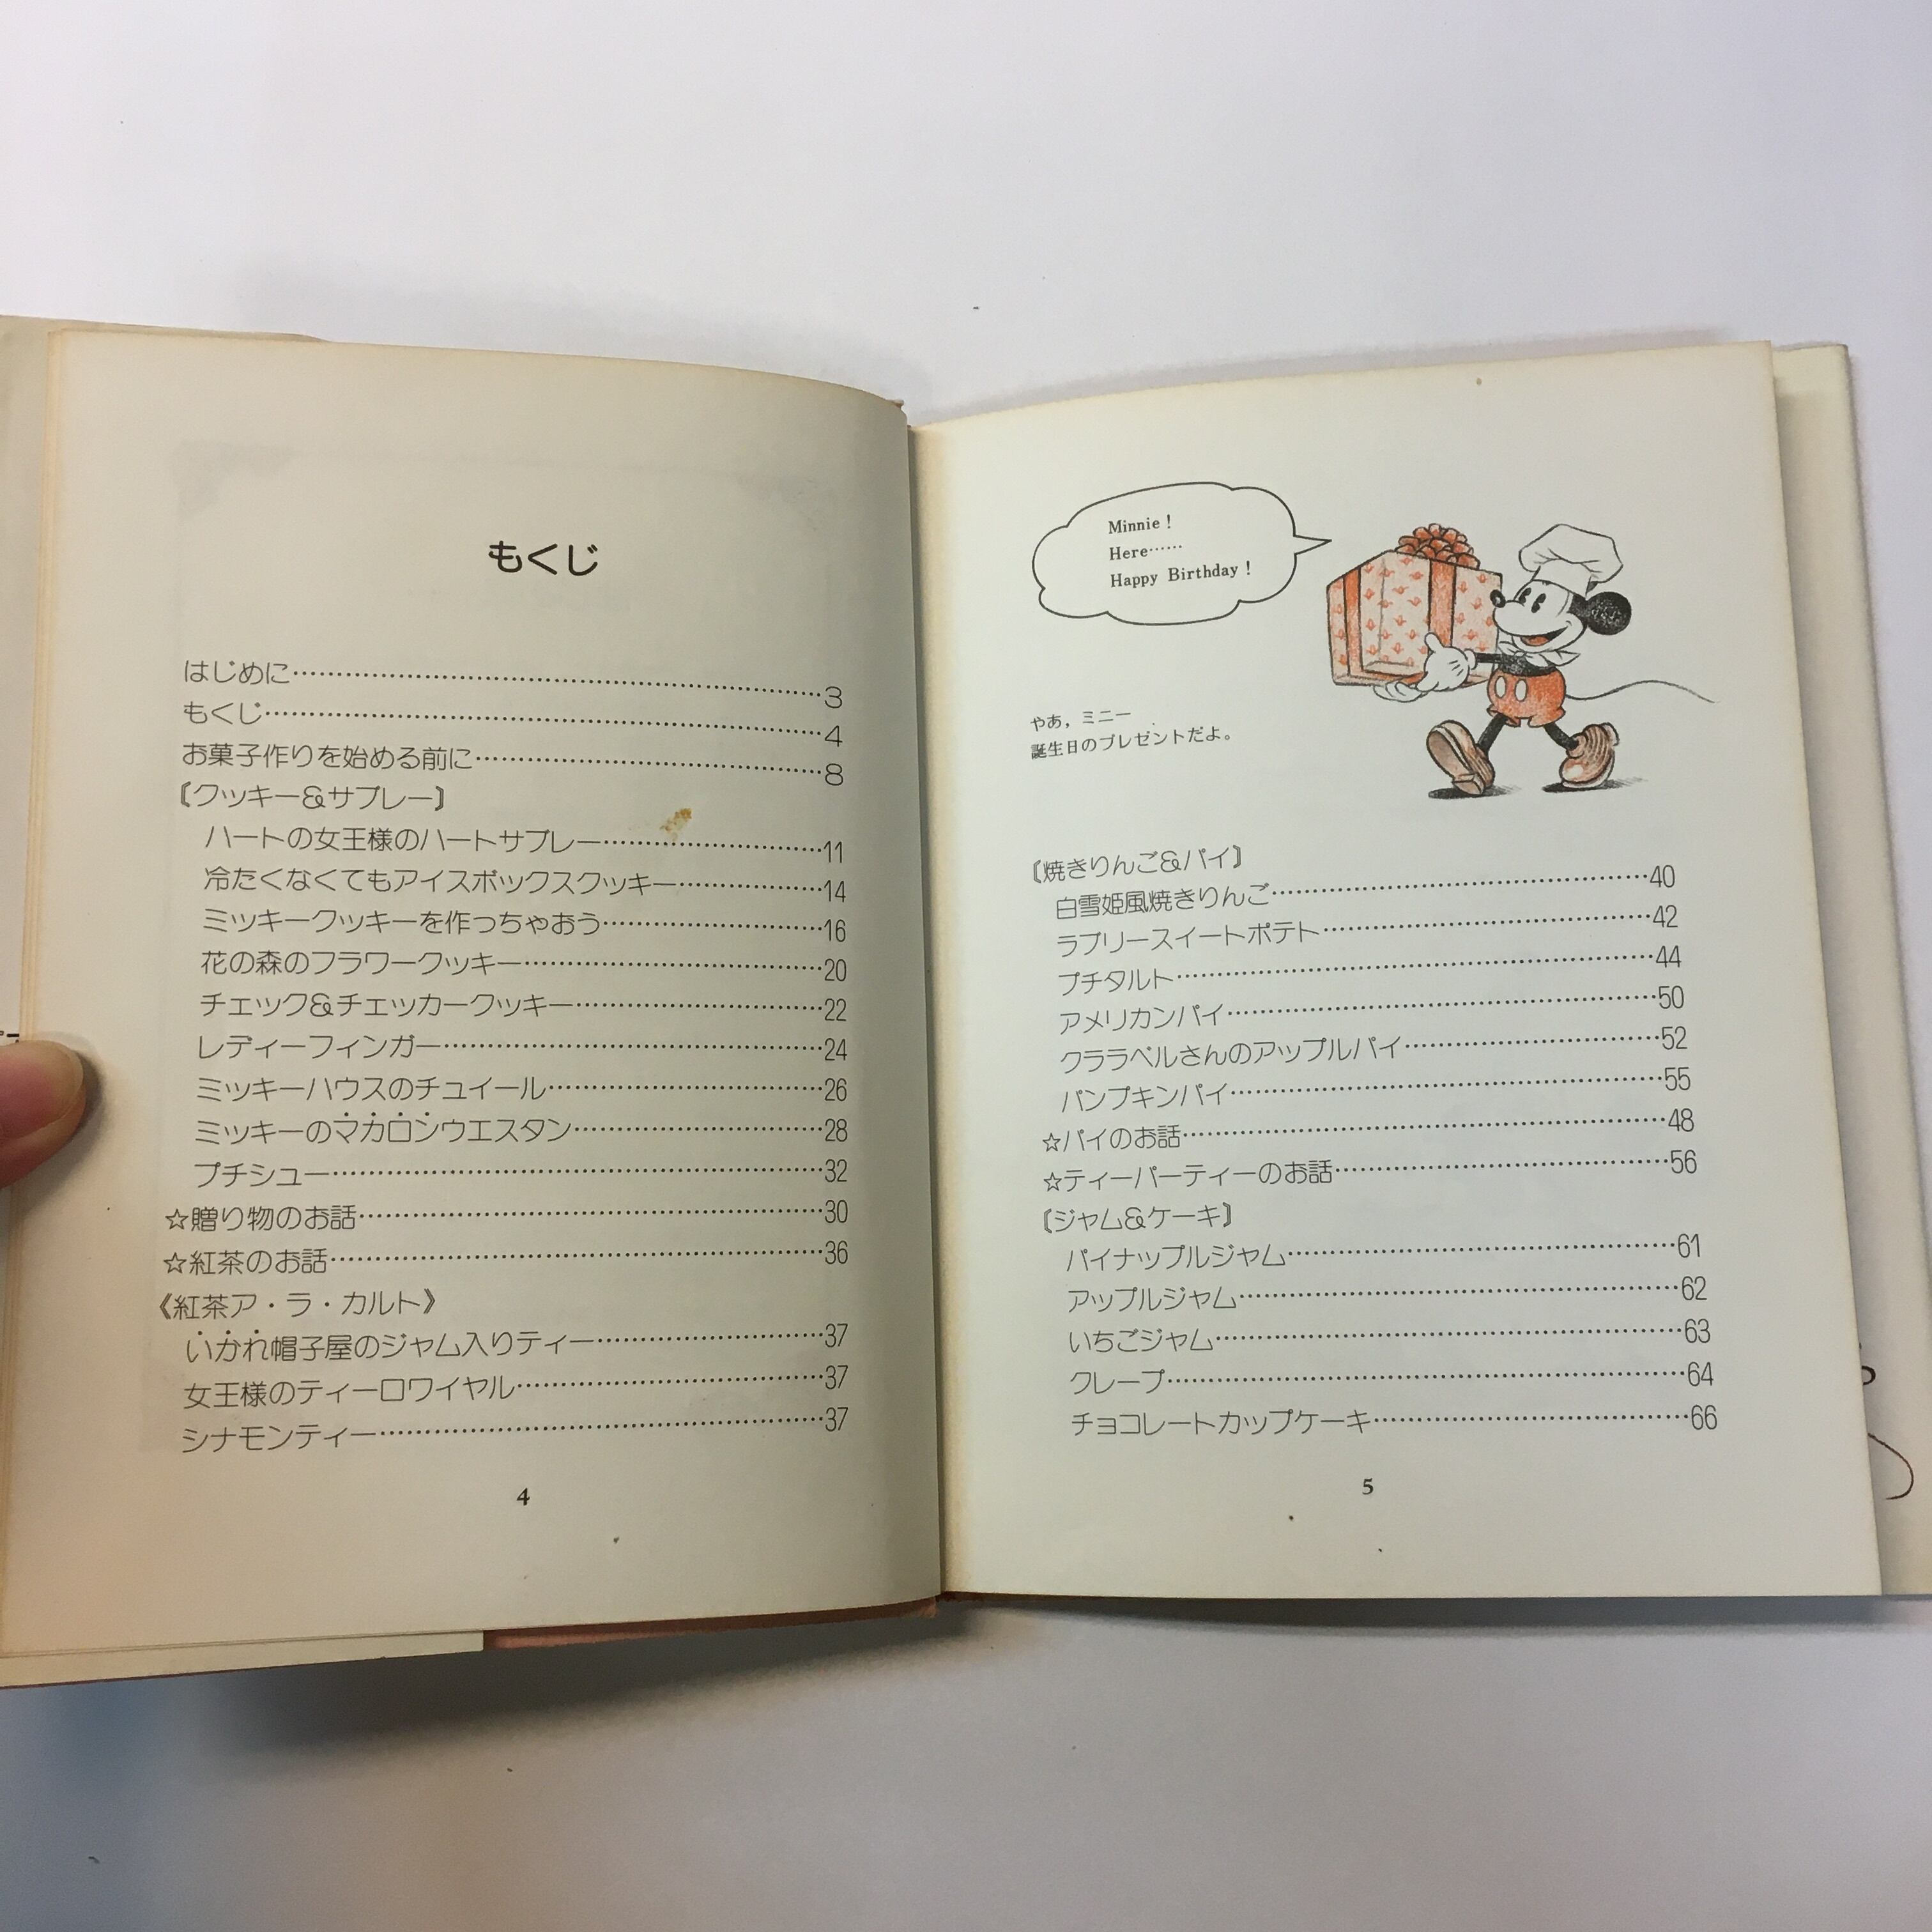 もくじ
はじめに……3
もくじ……4
お菓子作りを始める前に……8
〔クッキー&サブレー〕
ハートの女王様のハートサブレー……11
冷たくなくてもアイスボックスクッキー……14
ミッキークッキーを作っちゃおう……16
花の森のフラワークッキー……20
チェック&チェッカークッキー……22
レディーフィンガー……24
ミッキーハウスのチュイール……26
ミッキーのマカロンウエスタン……28
プチシュー……32
☆贈り物のお話……30
☆紅茶のお話……36
《紅茶ア・ラ・カルト》
いかれ帽子屋のジャム入りティー……37
女王様のティーロワイヤル……37
シナモンティー……37
4
Minnie!
Here……
Happy Birthday!
やあ,ミニー
誕生日のプレゼントだよ。
〔焼きりんご&パイ〕
白雪姫風焼きりんご……40
ラブリースイートポテト……42
プチタルト……44
アメリカンパイ……50
クララベルさんのアップルパイ……52
パンプキンパイ……55
☆パイのお話……48
☆ティーパーティーのお話……56
〔ジャム&ケーキ〕
パイナップルジャム……61
アップルジャム……62
いちごジャム……63
クレープ……64
チョコレートカップケーキ……66
5